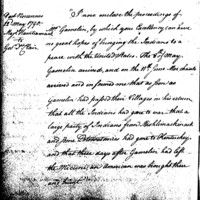 Fort Vincennes
22d May 1790.
Majr Hamtramck
to
Govr St Clair.
I now enclose the proceedings of
Mr Gamelin, by which your Excellency can have
no great hopes of bringing the Indians to a
peace with the United States. The 8th of May
Gamelin arrived, and on the 11th some Merchants
arrived and informed me that as soon as
Gamelin had passed their Villages on his return
that all the Indians had gone to war: that a
large party of Indians from Michilimackinack
and some Potowatamies had gone to Kentuckey,
and that three days after Gamelin had left
the Miamis an american was brought there
and